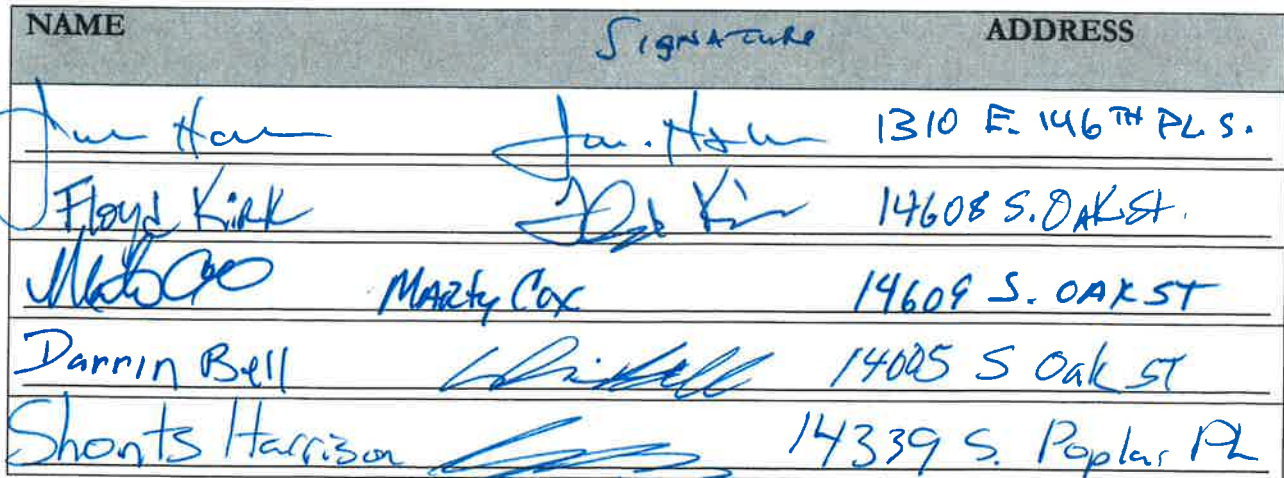 NAME SIGNATURE ADDRESS
1310 E. 146TH PL. S.
Floyd Kirk 14608 S. OAK St.
Marty Cox 14609 S. OAK ST
Darrin Bell 14005 S Oak ST
Shonts Harrison 14339 S. Poplar Pl